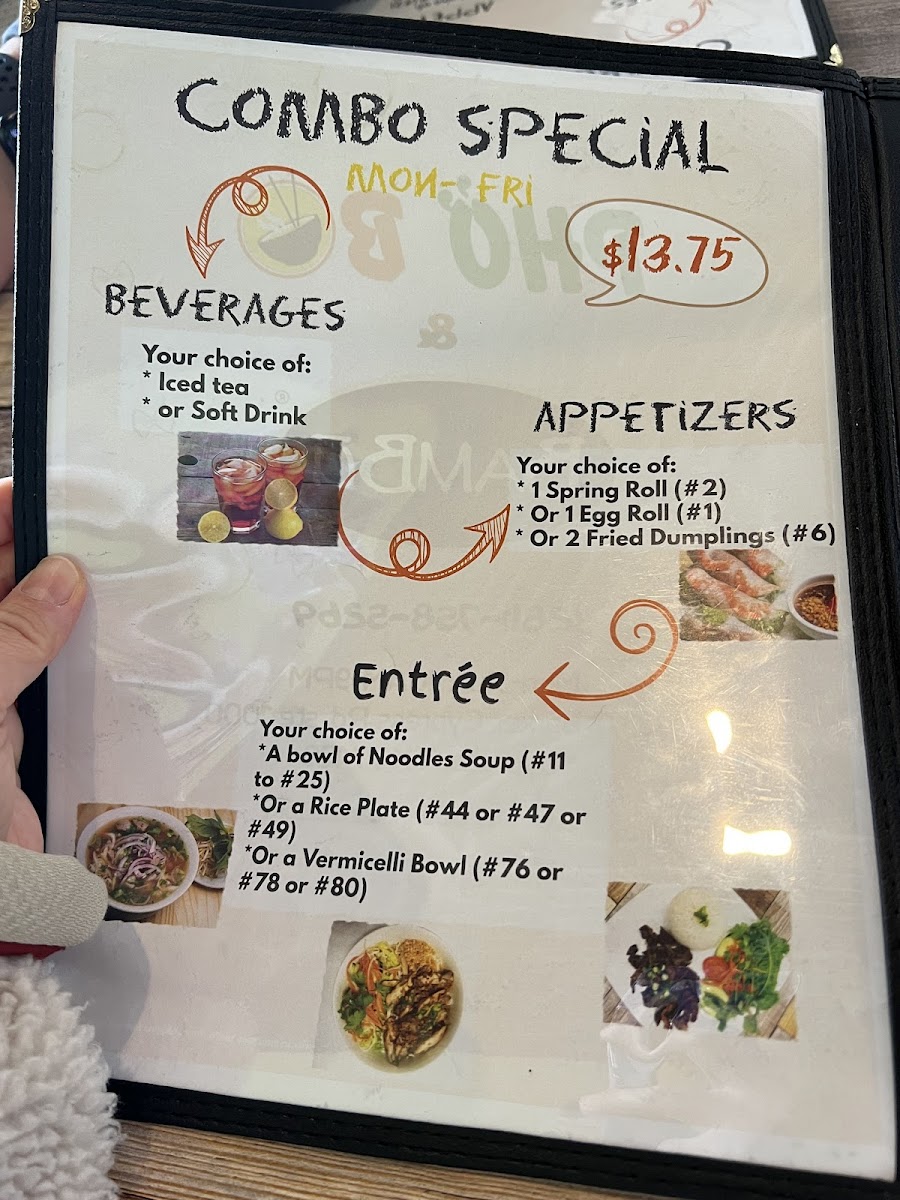 COMBO SPECIAL
MON- FRI
$13.75
BEVERAGES
Your choice of:
* Iced tea
* or Soft Drink
APPETIZERS
Your choice of:
* 1 Spring Roll (#2)
* Or 1 Egg Roll (#1)
* Or 2 Fried Dumplings (#6)
Entrée
Your choice of:
*A bowl of Noodles Soup (#11
to #25)
*Or a Rice Plate (#44 or #47 or
#49)
*Or a Vermicelli Bowl (#76 or
#78 or #80)